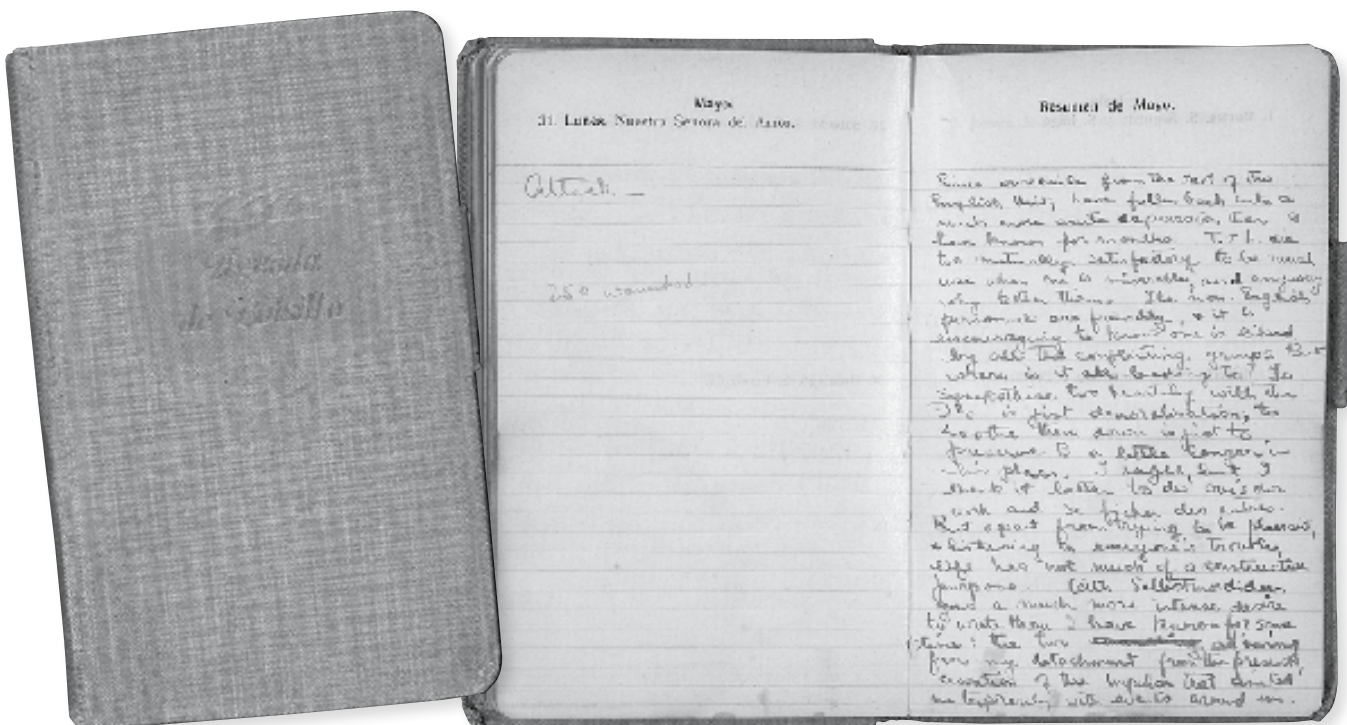 Agenda
de bolsillo
Mayo.
31. Lunes. Nuestra Señora del Amor.
Attack —
250 wounded
Resumen de Mayo.
Since from the rest of the
English Unit, have fallen back into a
much more acute depression than I
have known for months. T. & J. are
too mutually satisfactory to be much
use when one is miserable, and anyway
why bother them. The non-English
personnel are friendly, & it is
encouraging to know one is liked
by all the conflicting groups. But
where is it all leading to? To
sympathise too heartily with the
is just demoralisation, to
soothe them down is just to
preserve to a little longer in
this place. I but I
think it better to do one's own
work and se ficher des autres.
But apart from trying to be pleasant,
& listening to everyone's troubles,
life has not much of a constructive
purpose. With
and a much more intense desire
to write than I have known for some
time: the two all
from my detachment from the present,
cessation of the impulsion that
me temporarily with events around me.